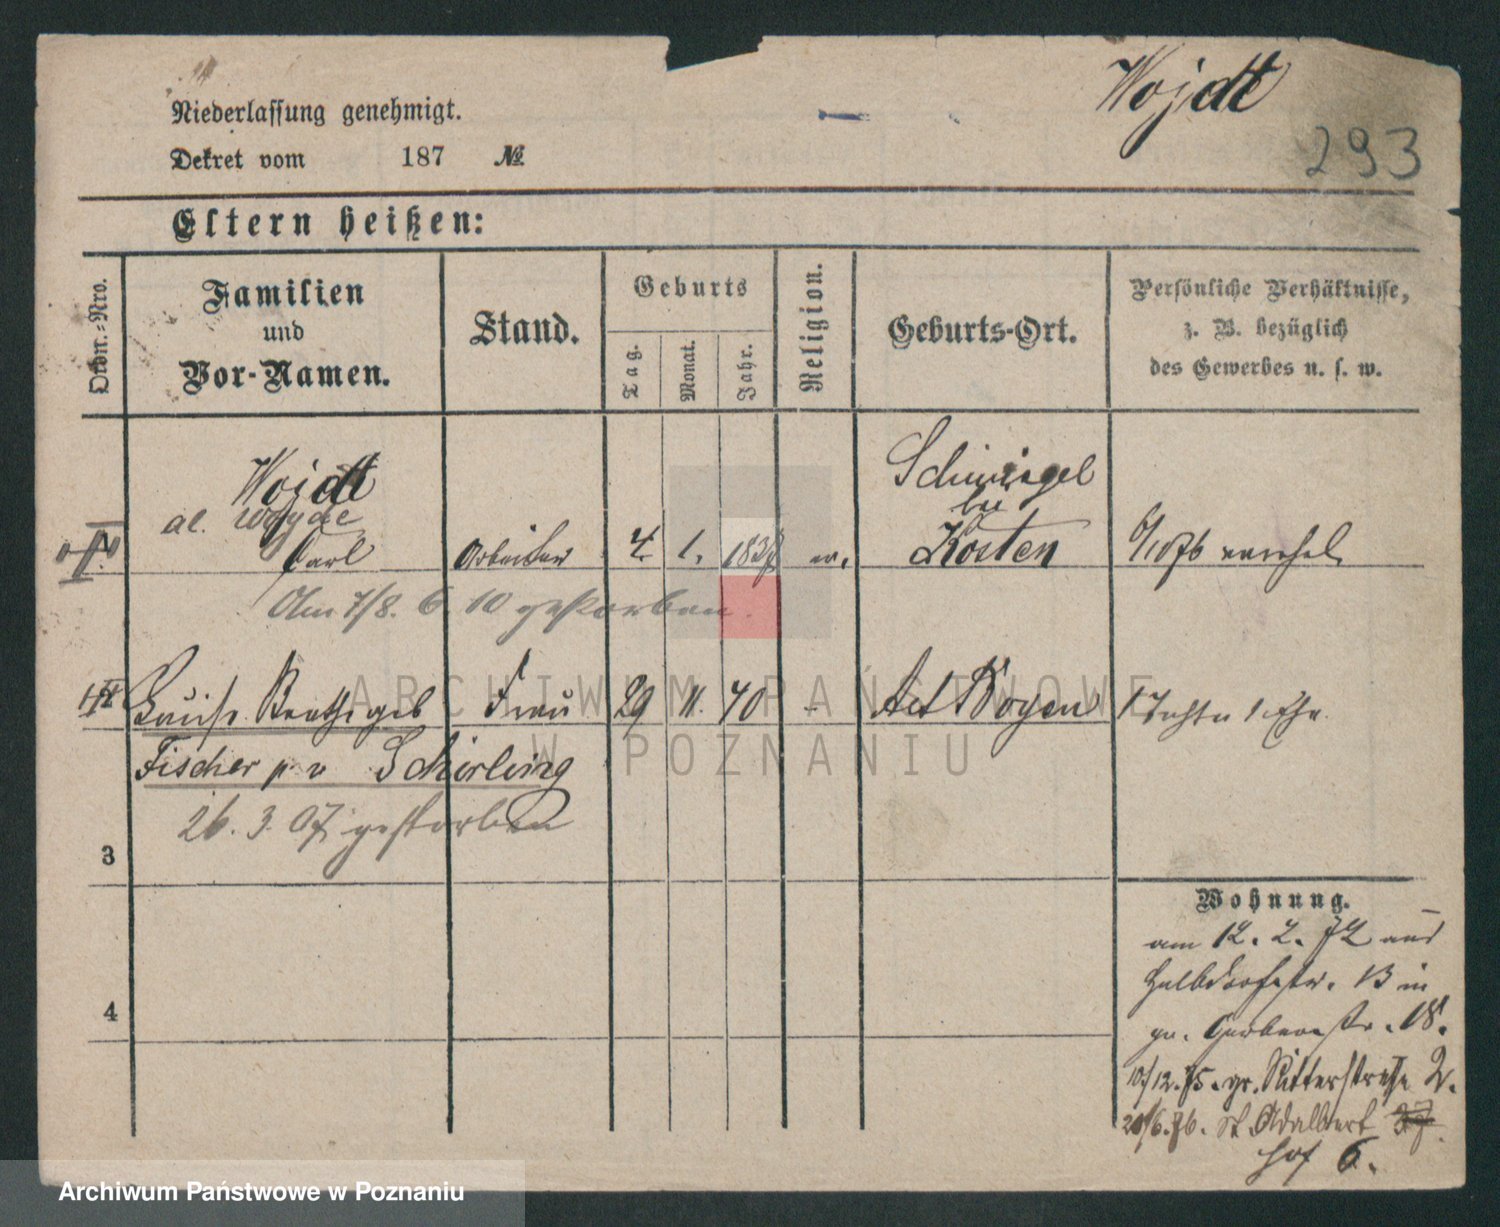 Wojdt
293
Niederlassung genehmigt.
Dekret vom 187 №
Eltern heißen:
Ordn.-Nro.
Familien
und
Vor-Namen.
Stand.
Geburts
Tag.
Monat.
Jahr.
Religion.
Geburts-Ort.
Persönliche Verhältnisse,
z. B. bezüglich
des Gewerbes u. s. w.
Wojdt
al. Woyde
Carl
Arbeiter
4. 1.
ev.
Schwiegel
bei
Kosten
Am 7/8. 6 10 gestorben.
Louise
Frau
29 11. 40
Alt Boyen
1 Tochter 1. Ehe.
Fischer p v Schirling
26. 3. 07 gestorben
3
4
Wohnung.
am 12. 2. 72 aus
Halbdorfstr. 13 in
gr. Gerberstr. 18.
10/12. 75. gr. Ritterstraße 2.
20/6. 76. St. Adalbert
Hof 6.
ARCHIWUM PAŃSTWOWE
W POZNANIU
Archiwum Państwowe w Poznaniu